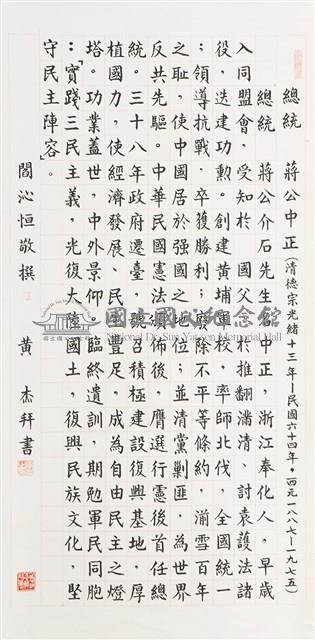 總統　蔣公中正（清德宗光緒十三年－民國六十四年・西元一八八七－一九七五）
總統　蔣公介石先生，中正，浙江奉化人。早歲
入同盟會，受知於　國父，於推翻滿清、討袁護法諸
役，迭建功勳。創建黃埔軍校，率師北伐，全國統一
；領導抗戰，卒獲勝利；廢除不平等條約，湔雪百年
之恥，使中國居於強國之地位；並清黨剿匪，為世界
反共先驅。中華民國憲法頒佈後，膺選行憲後首任總
統。三十八年政府遷臺，號召積極建設復興基地，厚
植國力，使經濟發展、民生豐足，成為自由民主之燈
塔。功業蓋世，中外景仰。臨終遺訓，期勉軍民同胞
：「實踐三民主義，光復大陸國土，復興民族文化，堅
守民主陣容」。
閻沁恒敬撰　黃杰拜書
國立國父紀念館
National Dr. Sun Yat-sen Memorial Hall